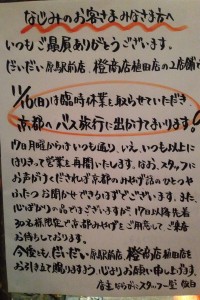 なじみのお客さまみなさま方へ
いつもご贔屓ありがとうございます。
だいだい原駅前店、橙商店植田店の2店舗
11/16(日)は臨時休業を取らせていただき
京都へバス旅行に出かけております!
17日月曜からはいつも通り、いえ、いつも以上に
はりきって営業を再開いたします。なお、スタッフに
お声がけくだされば京都のみやげ話のひとつや
ふたつお聞かせできるはずでございます。また、
心ばかりの品ではございますが、17日以降先着
30名様限定で京都みやげをご用意して、ご来店
お待ちしております。
今後とも、だいだい原駅前店、橙商店植田店を
お引き立て賜りますよう心よりお願い申し上げます。
店主ならびにスタッフ一同 敬白